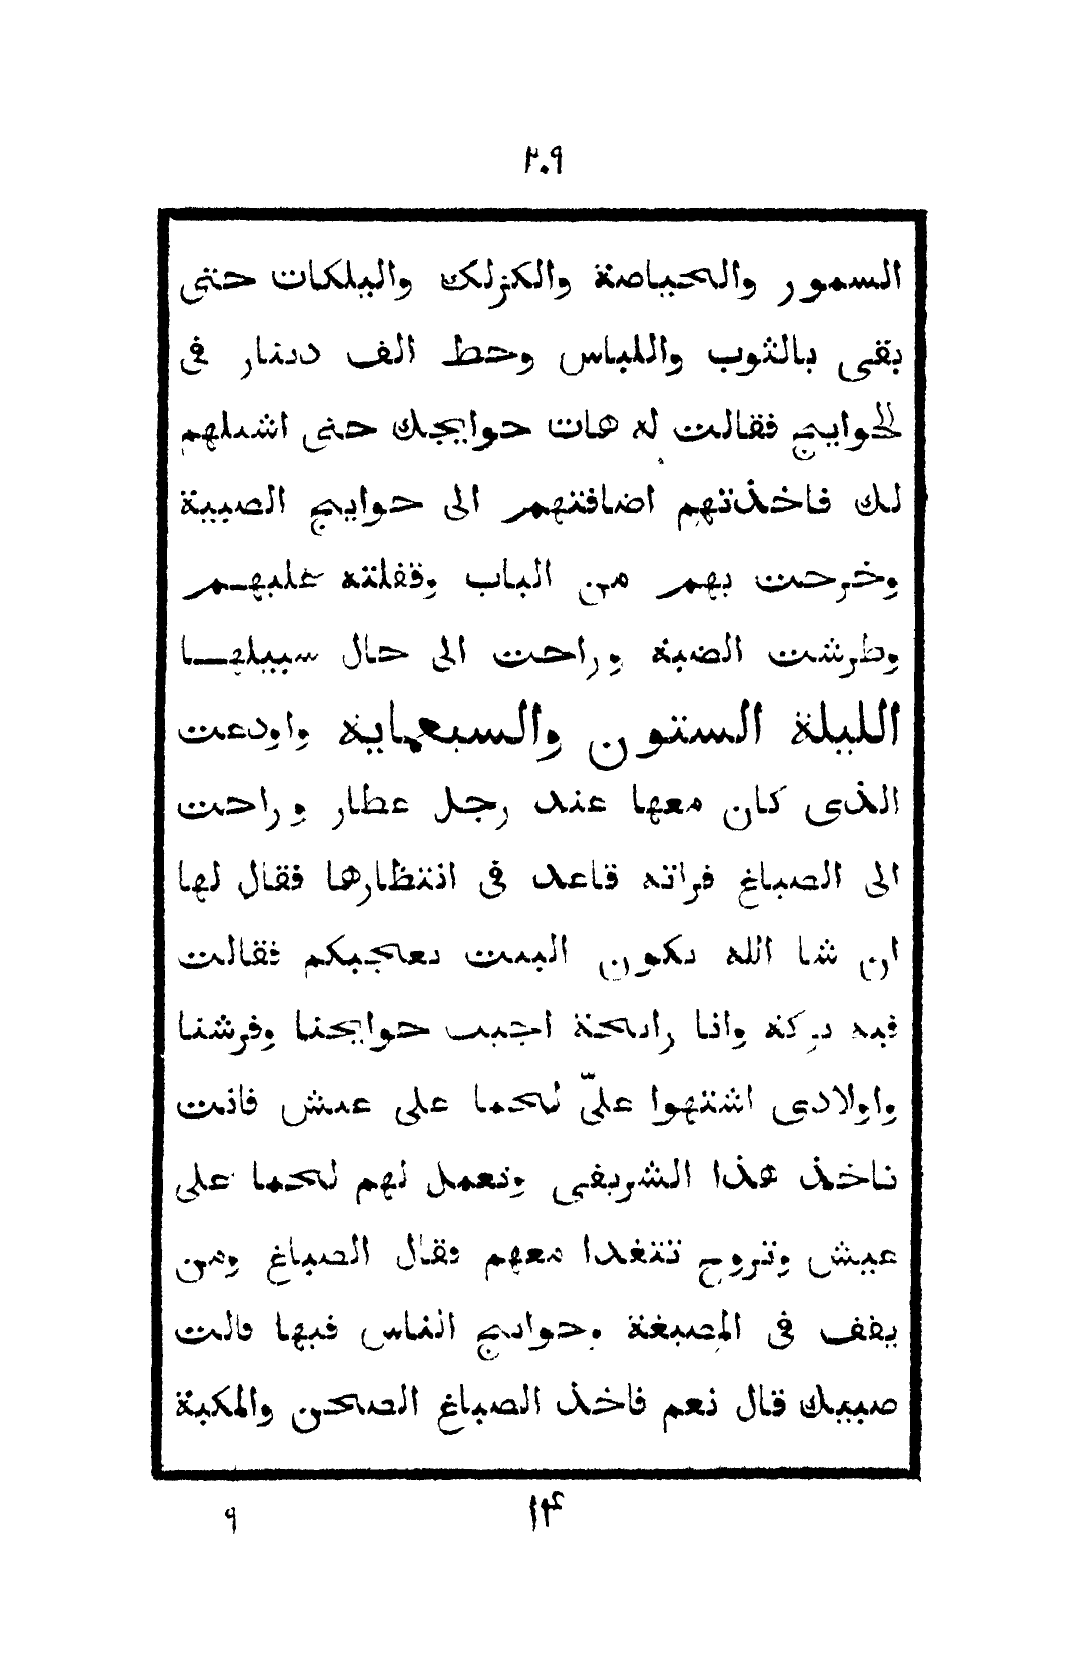 ٢٠٩
السمور والحياصة والكزلك واليلكات حتى
بقى بالثوب واللباس وحط الف دينار فى
الحوايج فقالت له هات حوايجك حتى اشيلهم
لك فاخذتهم اضافتهم الى حوايج الصبية
وخرجت بهم من الباب وقفلته عليهـم
وطرشت الضبة وراحت الى حال سبيلهـا
الليلة الستون والسبعماية واودعت
الذى كان معها عند رجل عطار وراحت
الى الصباغ فراته قاعد فى انتظارها فقال لها
ان شا الله يكون البيت يعجبكم فقالت
فيه بركة وانا رايحة اجيب حوايجنا وفرشنا
واولادى اشتهوا علىّ لحما على عيش فانت
تاخذ هذا الشريفى وتعمل لهم لحما على
عيش وتروح تتغدا معهم فقال الصباغ ومن
يقف فى المصبغة وحوايج الناس فيها قالت
صبيك قال نعم فاخذ الصباغ الصحن والمكبة
١٤
٩